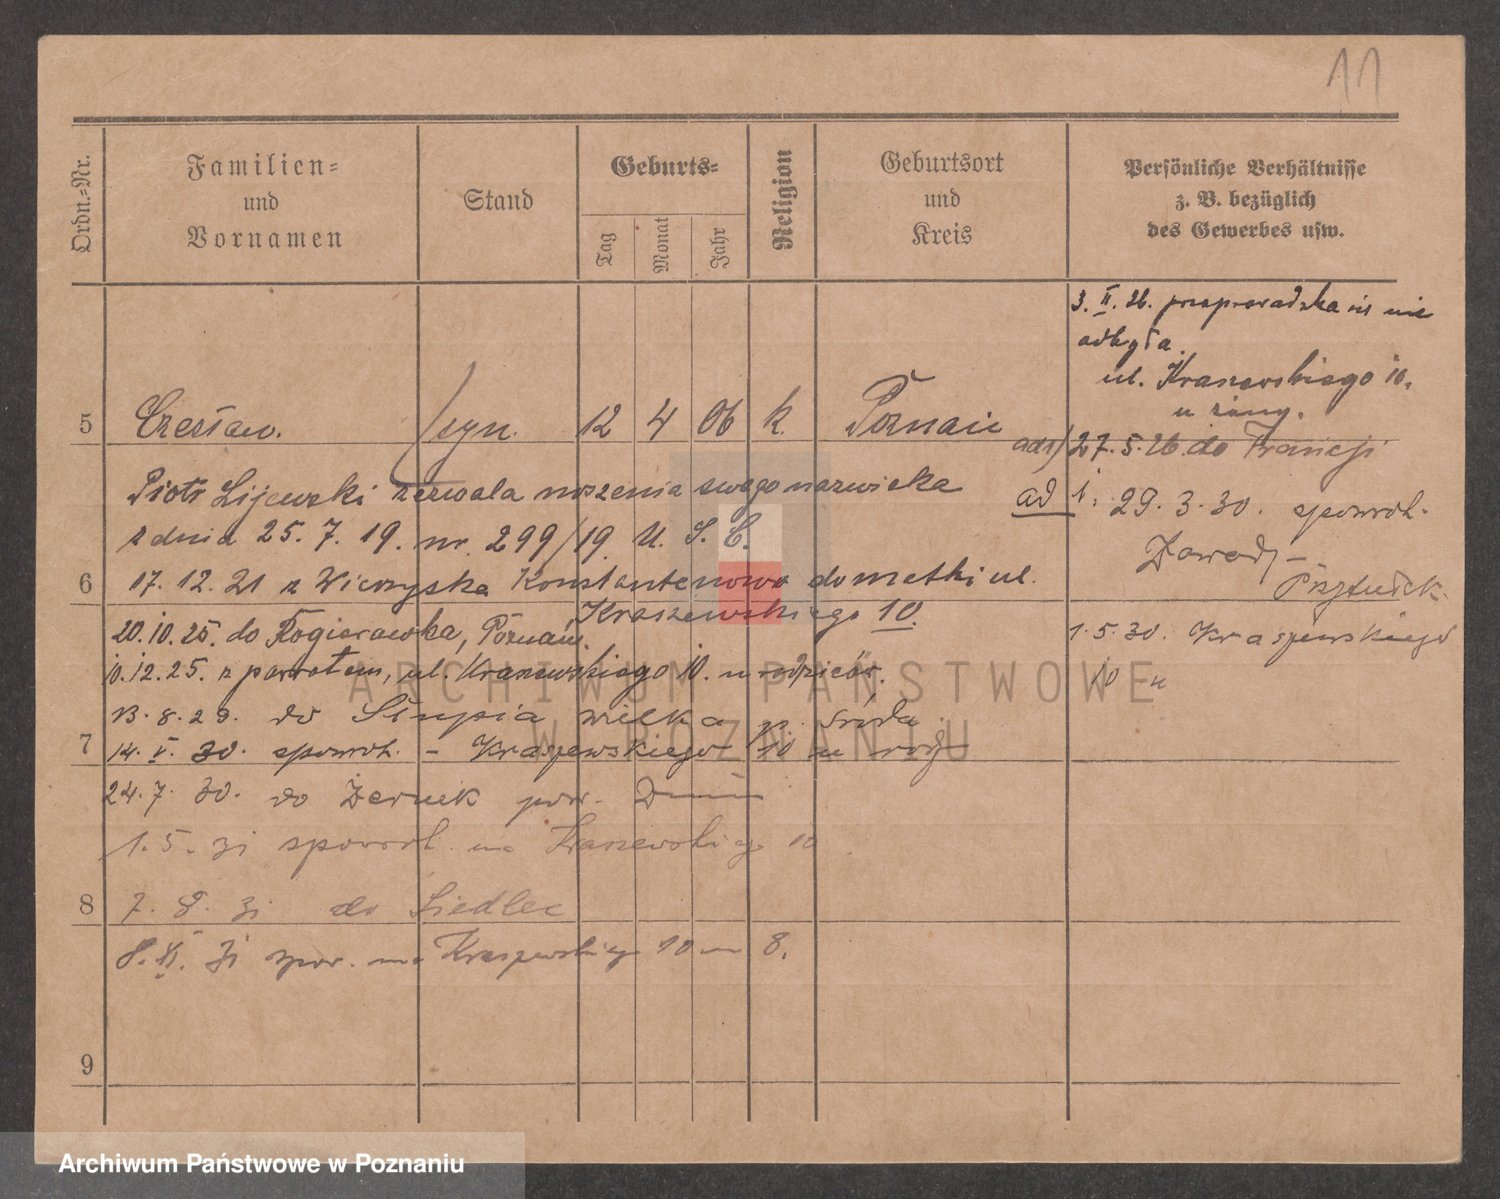 11
Ordn.-Nr.
Familien-
und
Vornamen
Stand
Geburts-
Tag
Monat
Jahr
Religion
Geburtsort
und
Kreis
Persönliche Verhältnisse
z. B. bezüglich
des Gewerbes usw.
3. II. 26. przeprowadzka się nie
odbyła.
ul. Kraszewskiego 10.
u
5 Czesław. syn. 12 4 06 k. Poznań
ad1) 27.5.26. do Francji
Piotr Lijewski zezwala noszenia swego nazwiska
z dnia 25. 7. 19. nr. 299/19 U. S. C.
ad 1. 29. 3. 30. spowrot.
6 17. 12. 21 z Wierzyska Konstantenowo do matki ul.
Kraszewskiego 10.
20.10.25. do Poznań.
10.12.25. z powrotem, ul. Kraszewskiego 10. u rodziców.
1.5.30. Kraszewskiego
10
13. 8. 29. do Slupia wielka p. Środa
7 14. V. 30. spowrot. - Kraszewskiego 10 u rodz
24. 7. 30. do pow.
1. 5. 31 spowrot. na Kraszewskiego 10
8 7. 8. 31 do Siedlec
8. XI. 31 spow. na Kraszewskiego 10 m 8.
9
ARCHIWUM PAŃSTWOWE
W POZNANIU
Archiwum Państwowe w Poznaniu